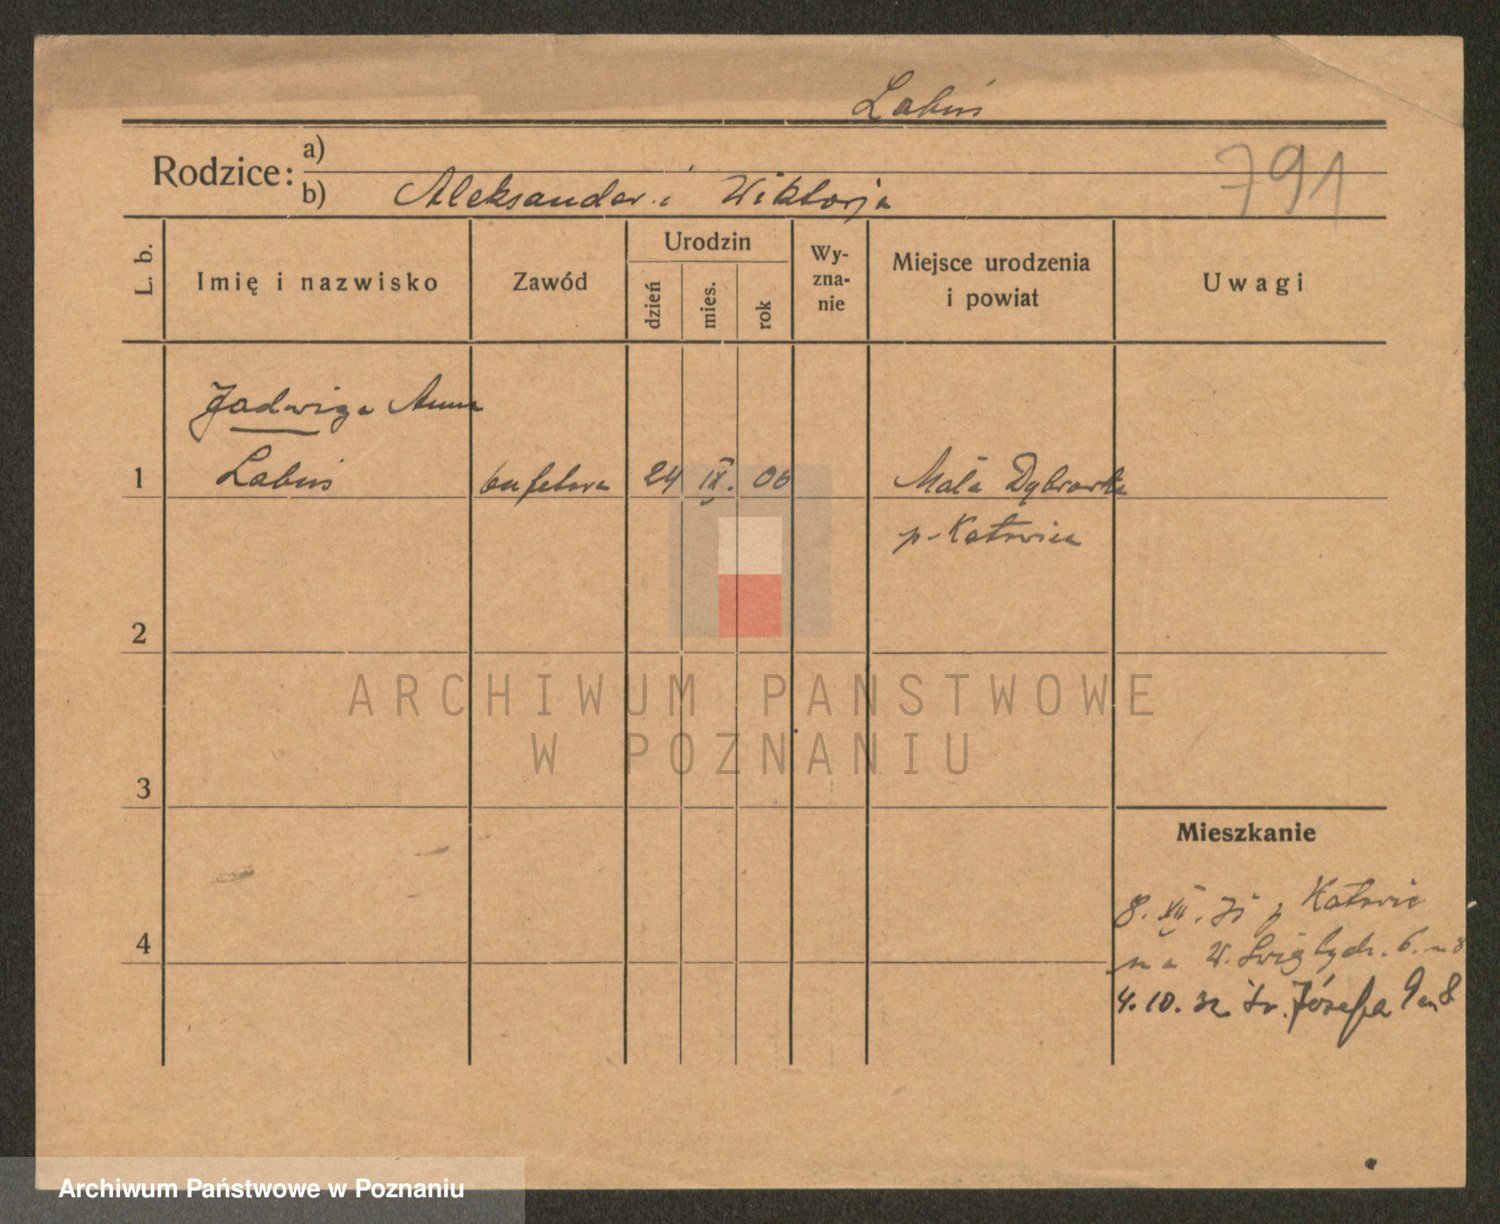 Labuś
Rodzice: a)
b) Aleksander i Wiktorja
791
L. b. Imię i nazwisko Zawód Urodzin dzień mies. rok Wy-zna-nie Miejsce urodzenia i powiat Uwagi
Jadwiga Anna
1 Labuś bufetowa 24 IX. 06 Mała Dąbrówka
p. Katowice
2
ARCHIWUM PAŃSTWOWE
W POZNANIU
3
Mieszkanie
8. XII. 31 z Katowic
4
na W.
4.10.32 Św. Józefa 9 m 8
Archiwum Państwowe w Poznaniu